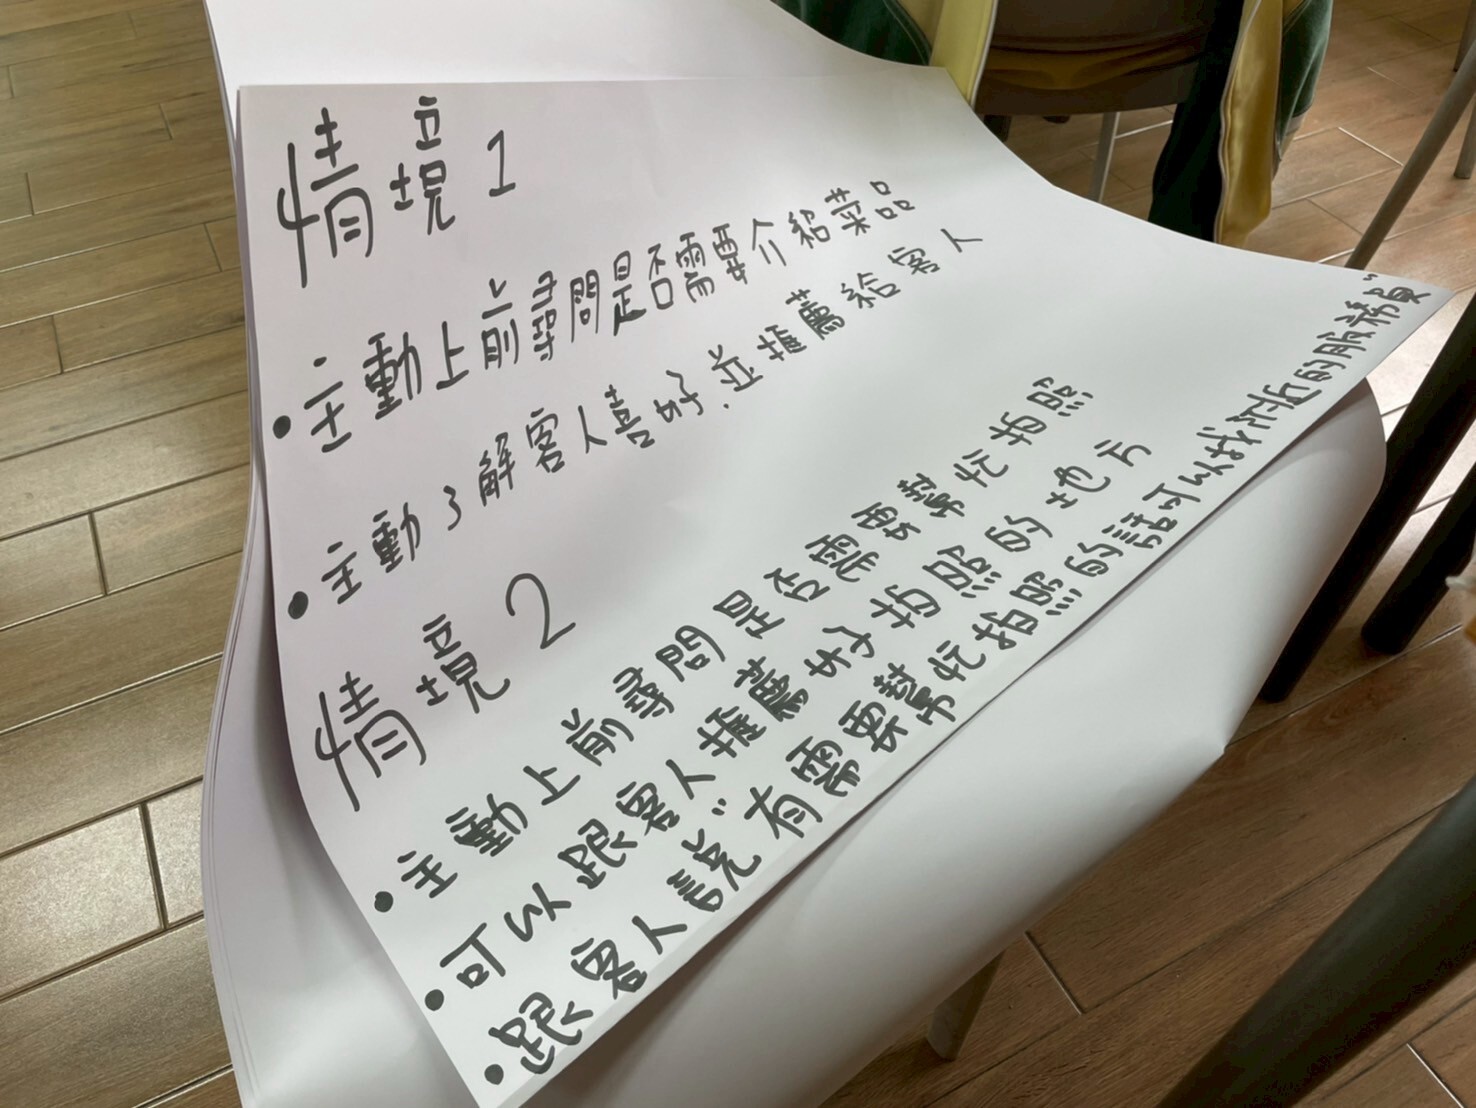 情境1
•主動上前尋問是否需要介紹菜品
•主動了解客人喜好.並推薦給客人
情境2
•主動上前尋問是否需要幫忙拍照
•可以跟客人推薦好拍照的地方
•跟客人說"有需要幫忙拍照的話可以找附近的服務員"